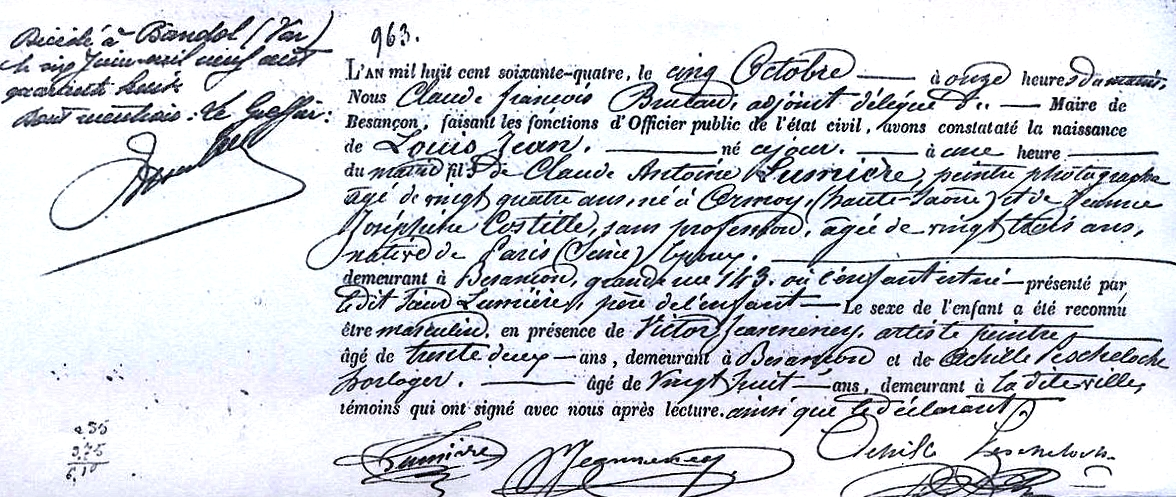 Décédé à Bandol (Var)
le six Juin mil neuf cent
quarante huit
dont mention : Le Greffier :
963.
L'AN mil huit cent soixante-quatre, le cinq Octobre — à onze heures du matin.
Nous Claude François Brulard, adjoint délégué d.. — Maire de
Besançon, faisant les fonctions d'Officier public de l'état civil, avons constataté la naissance
de Louis Jean. — né ce jour. — à une heure —
du matin fils de Claude Antoine Lumière, peintre photographe
âgé de vingt quatre ans, né à Ormoy, (haute-Saône) et de Jeanne
Joséphine Costille, sans profession, âgée de vingt trois ans,
native de Paris (Seine) Epoux. —
demeurant à Besançon, grande rue 143. où l'enfant est né — présenté par
le dit Sieur Lumière, père de l'enfant — Le sexe de l'enfant a été reconnu
être masculin. en présence de Victor Jeanneney, artiste peintre —
âgé de trente deux — ans, demeurant à Besançon et de Achille Pescheloche
horloger. — âgé de vingt huit — ans, demeurant à la dite ville,
témoins qui ont signé avec nous après lecture. ainsi que le déclarant.
Lumière Jeanneney Achille Pescheloche
2 35
3,75
6,10